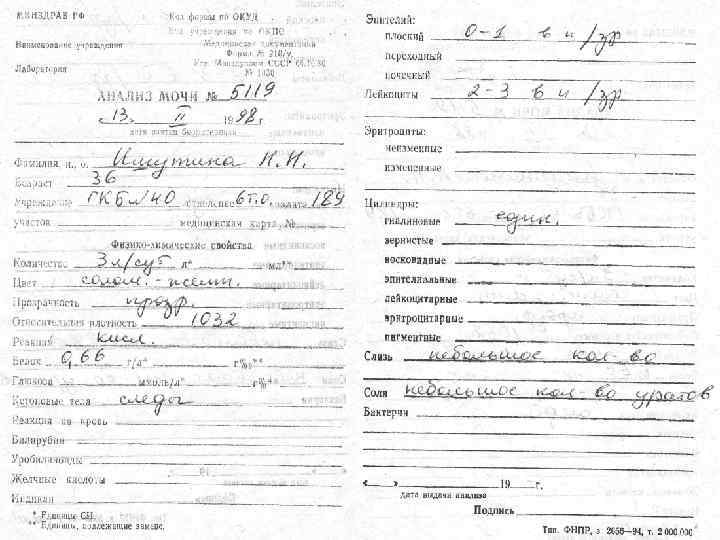 МИНЗДРАВ РФ
Код формы по ОКУД
Код учреждения по ОКПО
Наименование учреждения
Медицинская документация
Форма № 210/у
Лаборатория
Утв. Минздравом СССР 04.10.80
№ 1030
АНАЛИЗ МОЧИ № 5119
« 13 » II 1998 г.
дата взятия биоматериала
Фамилия, и., о.
Н. Н.
Возраст 36
Учреждение ГКБ №40 отделение 6 т.о. палата 189
участок медицинская карта №
Физико-химические свойства
Количество 3л/сут л* мл**
Цвет солом.-желт.
Прозрачность прозр.
Относительная плотность 1032
Реакция кисл.
Белок 0,66 г/л* г%**
Глюкоза ммоль/л* г%**
Кетоновые тела следы
Реакция на кровь
Билирубин
Уробилиноиды
Желчные кислоты
Индикан
* Единицы СИ.
** Единицы, подлежащие замене.
Эпителий:
плоский 0-1 в п/зр
переходный
почечный
Лейкоциты 2-3 в п/зр
Эритроциты:
неизменные
измененные
Цилиндры:
гиалиновые един.
зернистые
восковидные
эпителиальные
лейкоцитарные
эритроцитарные
пигментные
Слизь небольшое кол-во
Соли небольшое кол-во уратов
Бактерии
« » 19 г.
дата выдачи анализа
Подпись
Тип. ФНПР, з. 2656—94, т. 2 000 000